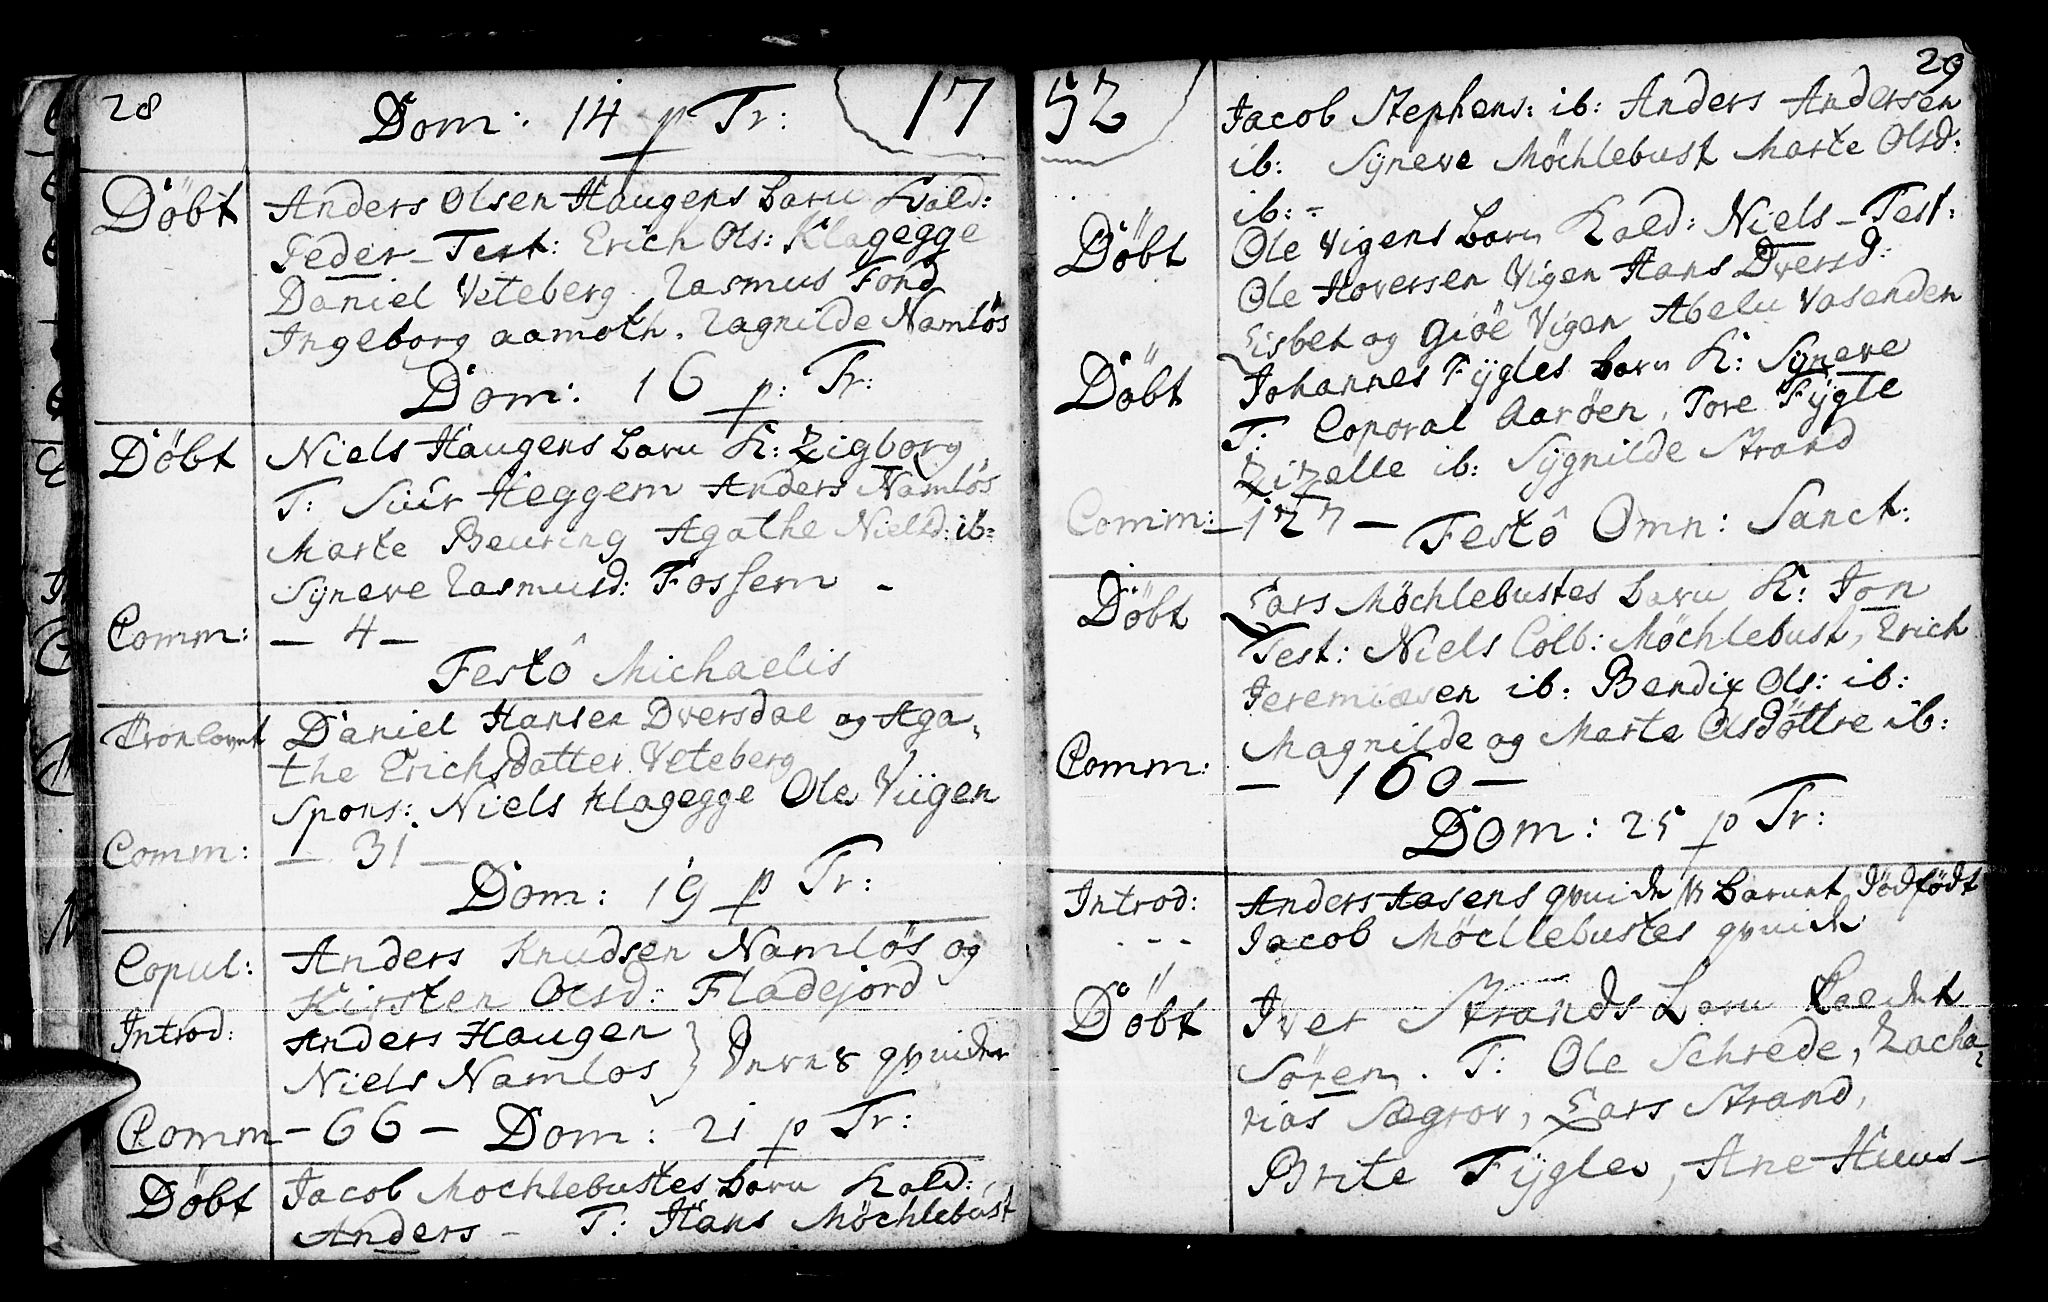 28
Dom: 14 p Tr: 17
Döbt Anders Olsen Haugens barn Kald:
Peder - Test: Erich Ols: Klagegge
Daniel Veteberg. Rasmus Fond
Ingeborg aamoth. Ragnilde Namløs
Dom: 16 p: Tr:
Döbt Niels Haugens barn K: Zigborg
T: Siur Heggem Anders Namløs
Marte Beuring Agathe Nielsd: ib:
Syneve Rasmusd: Fossem -
Comm: - 4 -
Festô Michaelis
Daniel Hansen Dversdal og Aga-
the Erichsdatter Veteberg
Spons: Niels Klagegge Ole Viigen
Comm: - 31 -
Dom: 19 p Tr:
Copul: Anders Knudsen Namløs og
Kirsten Olsd: Fladejord
Introd: Anders Haugen
Niels Namløs } qvinder
Comm - 66 - Dom: 21 p Tr:
Döbt Jacob Mochlebustes barn Kald:
Anders - T: Hans Möchlebust
52 29
Jacob Stephens: ib: Anders Andersen
ib: Syneve Möchlebust Marte Olsd:
ib: -
Döbt Ole Vigens barn Kald: Niels - Test:
Ole Hoversen Vigen Hans Dversd:
Lisbet og Giöe Vigen Abelu Vasenden
Döbt Johannes Fÿgles barn K: Syneve
T: Coporal Aarøen, Tore Fÿgle
Zizelle ib: Sÿgnilde Strand
Comm: - 127 - Festô Omn: Sanct:
Döbt Lars Möchlebustes barn K: Jon
Test: Niels Colb: Möchlebust, Erich
Jeremiæsen ib: Bendix Ols: ib:
Magnilde og Marte Olsdöttre ib:
Comm: - 160 -
Dom: 25 p Tr:
Introd: Anders Aasens qvinde barnet dödfödt
- - - Jacob Möchlebustes qvinde
Döbt Iver Strands barn Kaldet
Sören. T: Ole Schrede, Zacha-
rias Sægrov, Lars Strand,
Brite Fÿgles, Ane Huus-